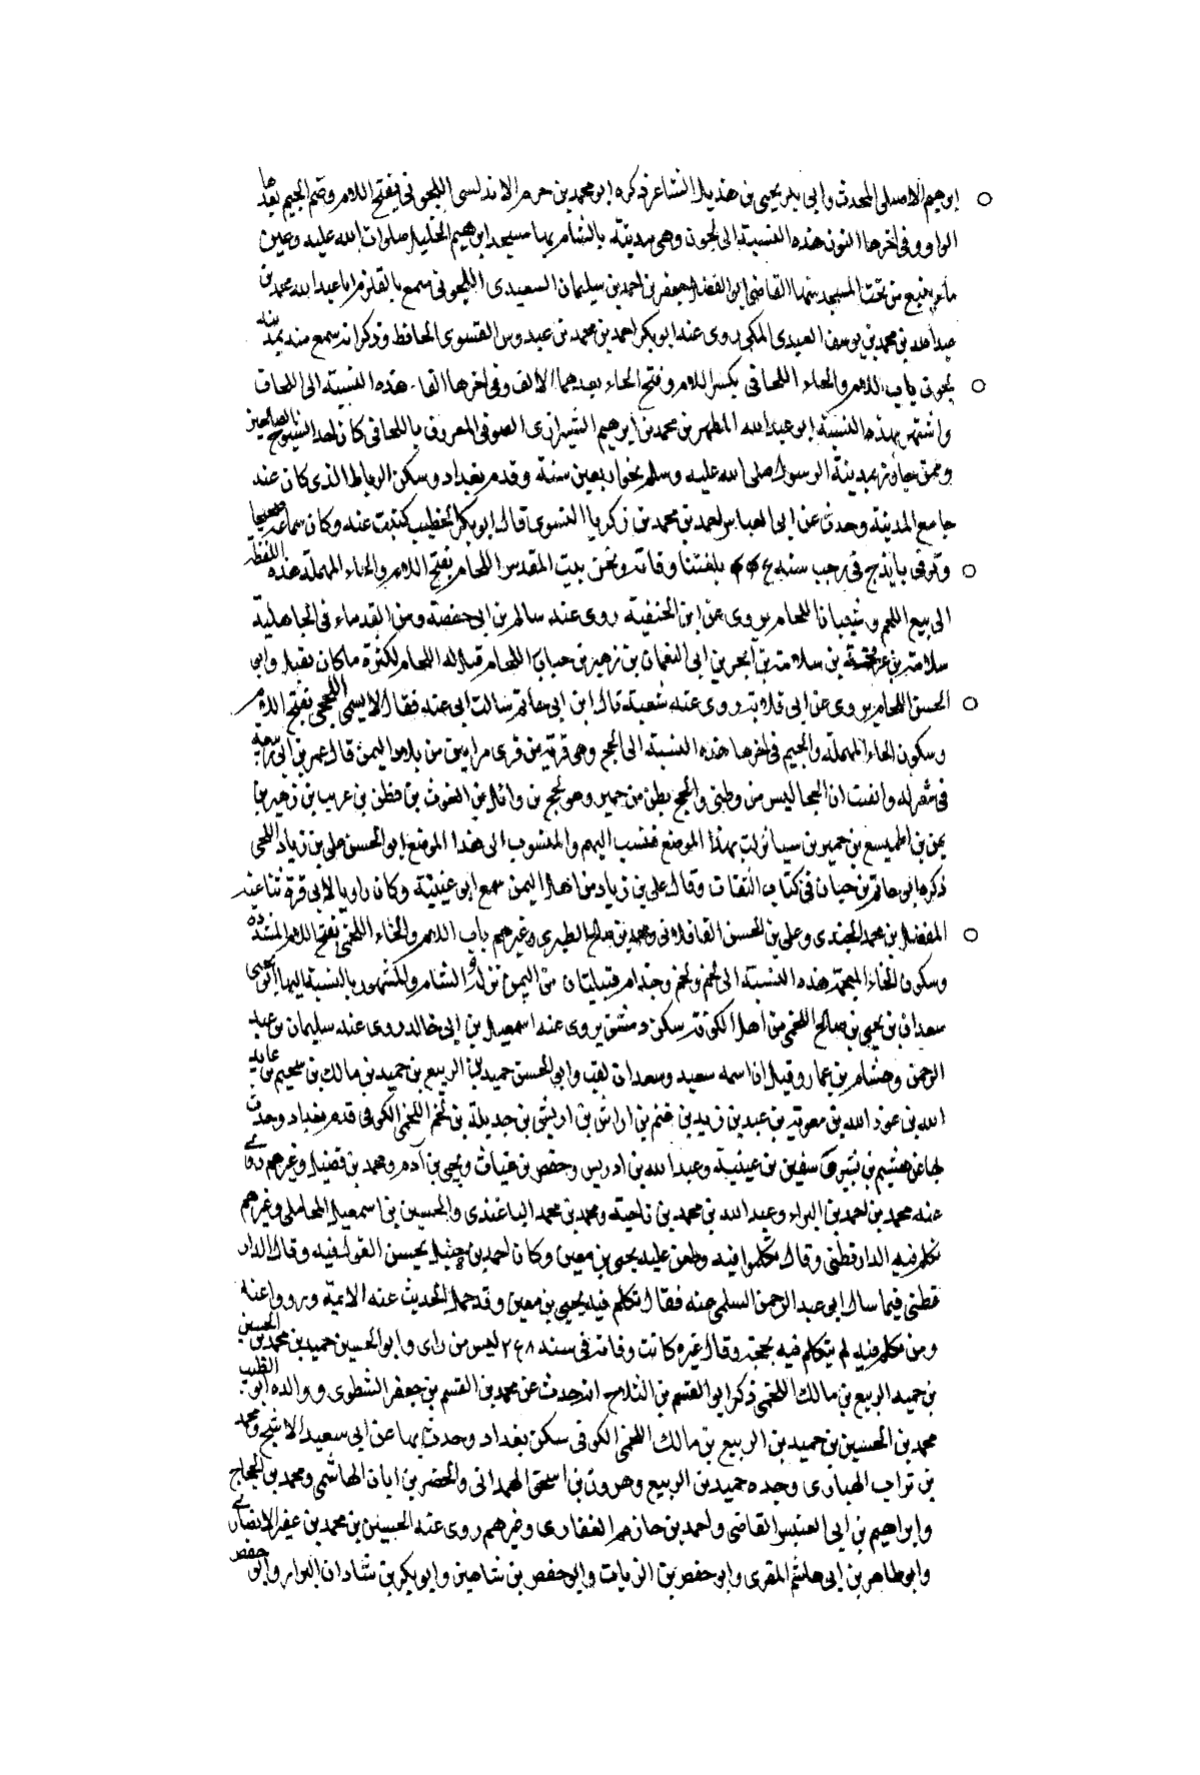 ابرهيم الاصيلى المحدث وابى بكر يحيى بن هذيل الشاعر ذكره ابو محمد بن حزم الاندلسى اللجونى بفتح اللام وضم الجيم بعدها
الواو وفى اخرها النون هذه النسبة الى لجون وهى مدينة بالشام بها مسجد ابرهيم الخليل صلوات الله عليه وعين
ماء ينبع من تحت المسجد منها القاضى ابو الفضل جعفر بن احمد بن سليمان السعيدى اللجونى سمع بالقلزم ابا عبد الله محمد بن
عبد الله بن محمد بن يوسف العبدى المكى روى عنه ابو بكر احمد بن محمد بن عبدوس الفسوى الحافظ وذكر انه سمع منه بمدينة
لجون باب اللام والحاء اللحافى بكسر اللام وفتح الحاء بعدهما الالف وفى اخرها الفاء هذه النسبة الى اللحاف
واشتهر بهذه النسبة ابو عبد الله المطهر بن محمد بن ابرهيم الشيرازى الصوفى المعروف باللحافى كان احد الشيوخ الصالحين
وممن جاور بمدينة الرسول صلى الله عليه وسلم نحو اربعين سنة وقدم بغداد وسكن الرباط الذى كان عند
جامع المدينة وحدث عن ابى العباس احمد بن محمد بن زكريا النسوى قال ابو بكر الخطيب كتبت عنه وكان سماعه صحيحا
وتوفى بايذج فى رجب سنة بلغتنا وفاته ونحن ببيت المقدس اللحام بفتح اللام والحاء المهملة هذه اللفظة
الى بيع اللحم و اللحام يروى عن ابن الحنفية روى عنه سالم بن ابى حفصة ومن القدماء فى الجاهلية
سلامة بن بن سلامة بن ابجر بن ابى النعمان بن زهير بن حباب اللحام قيل له اللحام لكثرة ما كان يقتل وابى
الحسن اللحام يروى عن ابى قلابة روى عنه شعبة قال ابن ابى حاتم سالت ابى عنه فقال لا يسمى اللحجى بفتح اللام
وسكون الحاء المهملة والجيم فى اخرها هذه النسبة الى لحج وهى قرية من قرى من بلاد اليمن قال عمر بن ابى ربيعة
فى شعر له وايقنت ان لحجا ليس من وطنى ولحج بطن من حمير وهو لحج بن وائل بن الغوث بن قطن بن عريب بن زهير بن
يمن بن الهميسع بن حمير بن سبا نزلت بهذا الموضع فنسب اليهم والمنسوب الى هذا الموضع ابو الحسن على بن زياد اللحجى
ذكره ابو حاتم بن حبان فى كتاب الثقات وقال على بن زياد من اهل اليمن سمع ابن عيينة وكان راويا لابى قرة ثنا عنه
المفضل بن محمد الجندى وعلى بن الحسن القافلانى ومحمد بن صالح الطبرى وغيرهم باب اللام والخاء اللخمى بفتح اللام المشددة
وسكون الخاء المعجمة هذه النسبة الى لخم ولخم وجذام قبيلتان من اليمن نزلوا الشام والمشهور بالنسبة اليها ابو يحيى
سعدان بن يحيى بن صالح اللخمى من اهل الكوفة سكن دمشق يروى عنه اسمعيل بن ابى خالد روى عنه سليمان بن عبد
الرحمن وهشام بن عمار وقيل ان اسمه سعيد وسعدان لقب وابى الحسن حميد بن الربيع بن حميد بن مالك بن سحيم بن عايد
الله بن عوذ الله بن معوية بن عبيد بن زيد بن غنم بن اراش بن اريش بن جديلة بن لخم اللخمى الكوفى قدم بغداد وحدث
بها عن هشيم بن بشير وعن سفين بن عيينة وعبد الله بن ادريس وحفص بن غياث ويحيى بن آدم ومحمد بن فضيل وغيرهم روى
عنه محمد بن احمد بن البراء وعبد الله بن محمد بن ناجية ومحمد بن محمد الباغندى والحسين بن اسمعيل المحاملى وغيرهم
تكلم فيه الدارقطنى وقال تكلموا فيه وطعن عليه يحيى بن معين وكان احمد بن حنبل يحسن القول فيه وقال الدار
قطنى فيما سال ابى عبد الرحمن السلمى عنه فقال تكلم فيه يحيى بن معين وقد حمل الحديث عنه الائمة ورووا عنه
ومن تكلم فيه لم يتكلم فيه بحجة وقال غيره كانت وفاته فى سنة ٢٥٨ بسر من راى وابو الحسين حميد بن محمد بن الحسين
بن حميد الربيع بن مالك اللخمى ذكر ابو القسم بن الثلاج انه حدث عن محمد بن القسم بن جعفر الشطوى ووالده ابو الطيب
محمد بن الحسين بن حميد بن الربيع بن مالك اللخمى الكوفى سكن بغداد وحدث بها عن ابى سعيد الاشج ومحمد
بن تراب الهبارى وجده حميد بن الربيع وهرون بن اسحق الهمدانى والخضر بن ابان الهاشمى ومحمد بن الحجاج
وابراهيم بن ابى العنبس القاضى واحمد بن حازم الغفارى وغيرهم روى عنه الحسين بن محمد بن عفير الانصارى
وابو طاهر بن ابى هاشم المقرى وابو حفص بن الزيات وابو حفص بن شاهين وابو بكر بن شاذان البزار وابو حفص